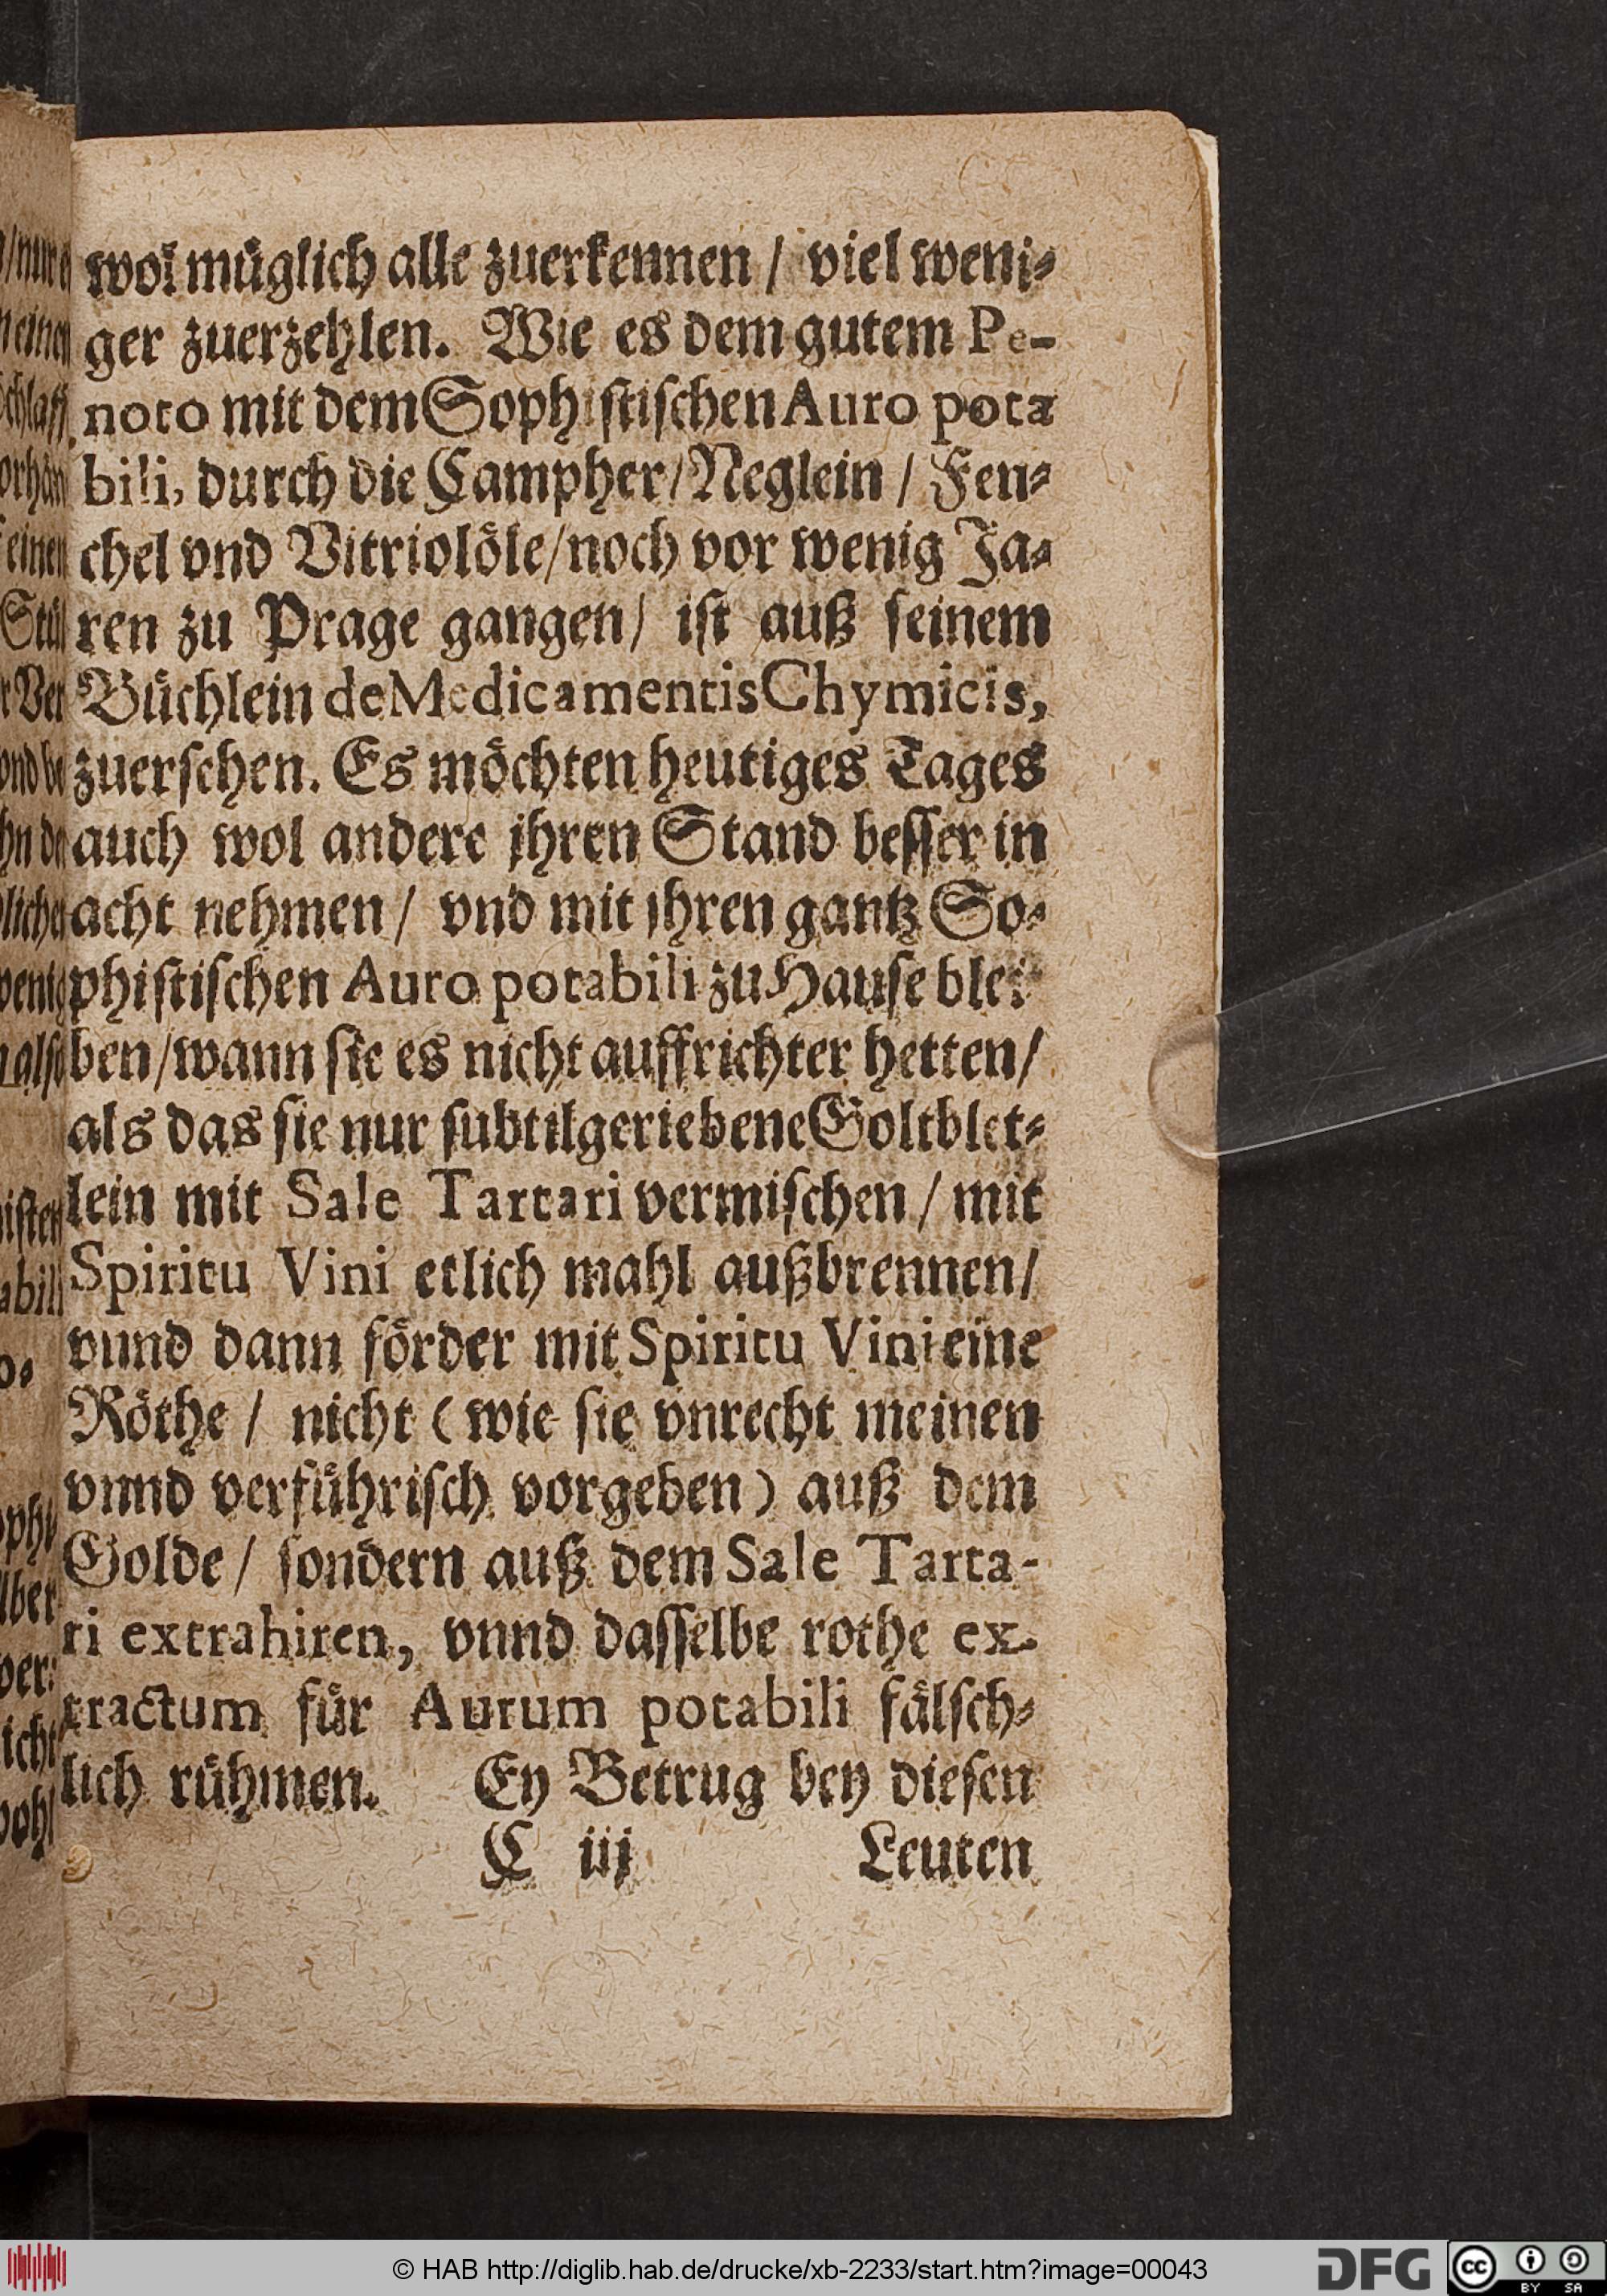 wol müglich alle zuerkennen / viel weni-
ger zuerzehlen. Wie es dem gutem Pe-
noto mit dem Sophistischen Auro pota
bili, durch die Campher / Neglein / Fen-
chel vnd Vitriolöle / noch vor wenig Ja-
ren zu Prage gangen / ist auß seinem
Büchlein de Medicamentis Chymicis,
zuersehen. Es möchten heutiges Tages
auch wol andere jhren Stand besser in
acht nehmen / vnd mit ihren gantz So-
phistischen Auro potabili zu Hause blei
ben / wann sie es nicht auffrichter hetten /
als das sie nur subtilgeriebene Goltblet-
lein mit Sale Tartari vermischen / mit
Spiritu Vini etlich mahl außbrennen /
vnnd dann förder mit Spiritu Vini eine
Röthe / nicht ( wie sie vnrecht meinen
vnnd verführisch vorgeben ) auß dem
Golde / sondern auß dem Sale Tarta-
ri extrahiren, vnnd dasselbe rothe ex-
tractum für Aurum potabili fälsch-
lich rühmen. Ey Betrug bey diesen
C iij Leuten
© HAB http://diglib.hab.de/drucke/xb-2233/start.htm?image=00043
DFG
cc BY SA